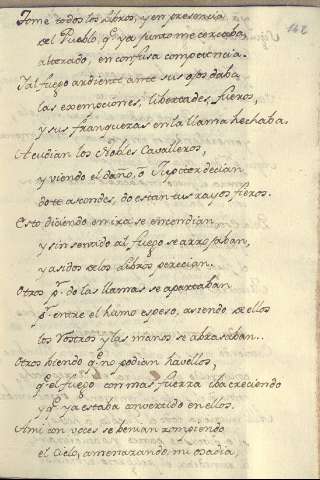 142
Tomé todos los Libros, y en presencia
del Pueblo, q.e ya junto me cercaba,
alterado, en confusa competencia.
Y al fuego ardiente ante sus ojos daba
las exempciones, libertades, fueros,
y sus franquezas en la llama hechaba.
Acudian los Nobles Cavalleros,
y viendo el daño, o Jupiter decian
dote ascondes, do estan tus rayos fieros.
Esto diciendo en ira se encendian
y sin sentido al fuego se arrojaban,
y asidos de los Libros perecian.
Otros p.r do las llamas se apartaban
p.r entre el humo espeso, asiendo de ellos
los rostros y las manos se abrasaban..
Otros biendo q.e no podian havellos,
q.e el fuego con mas fuerza iba creciendo
y q.e ya estaba convertido en ellos.
A mi con voces se benian rompiendo
el Cielo, amenazando, mi osadia,